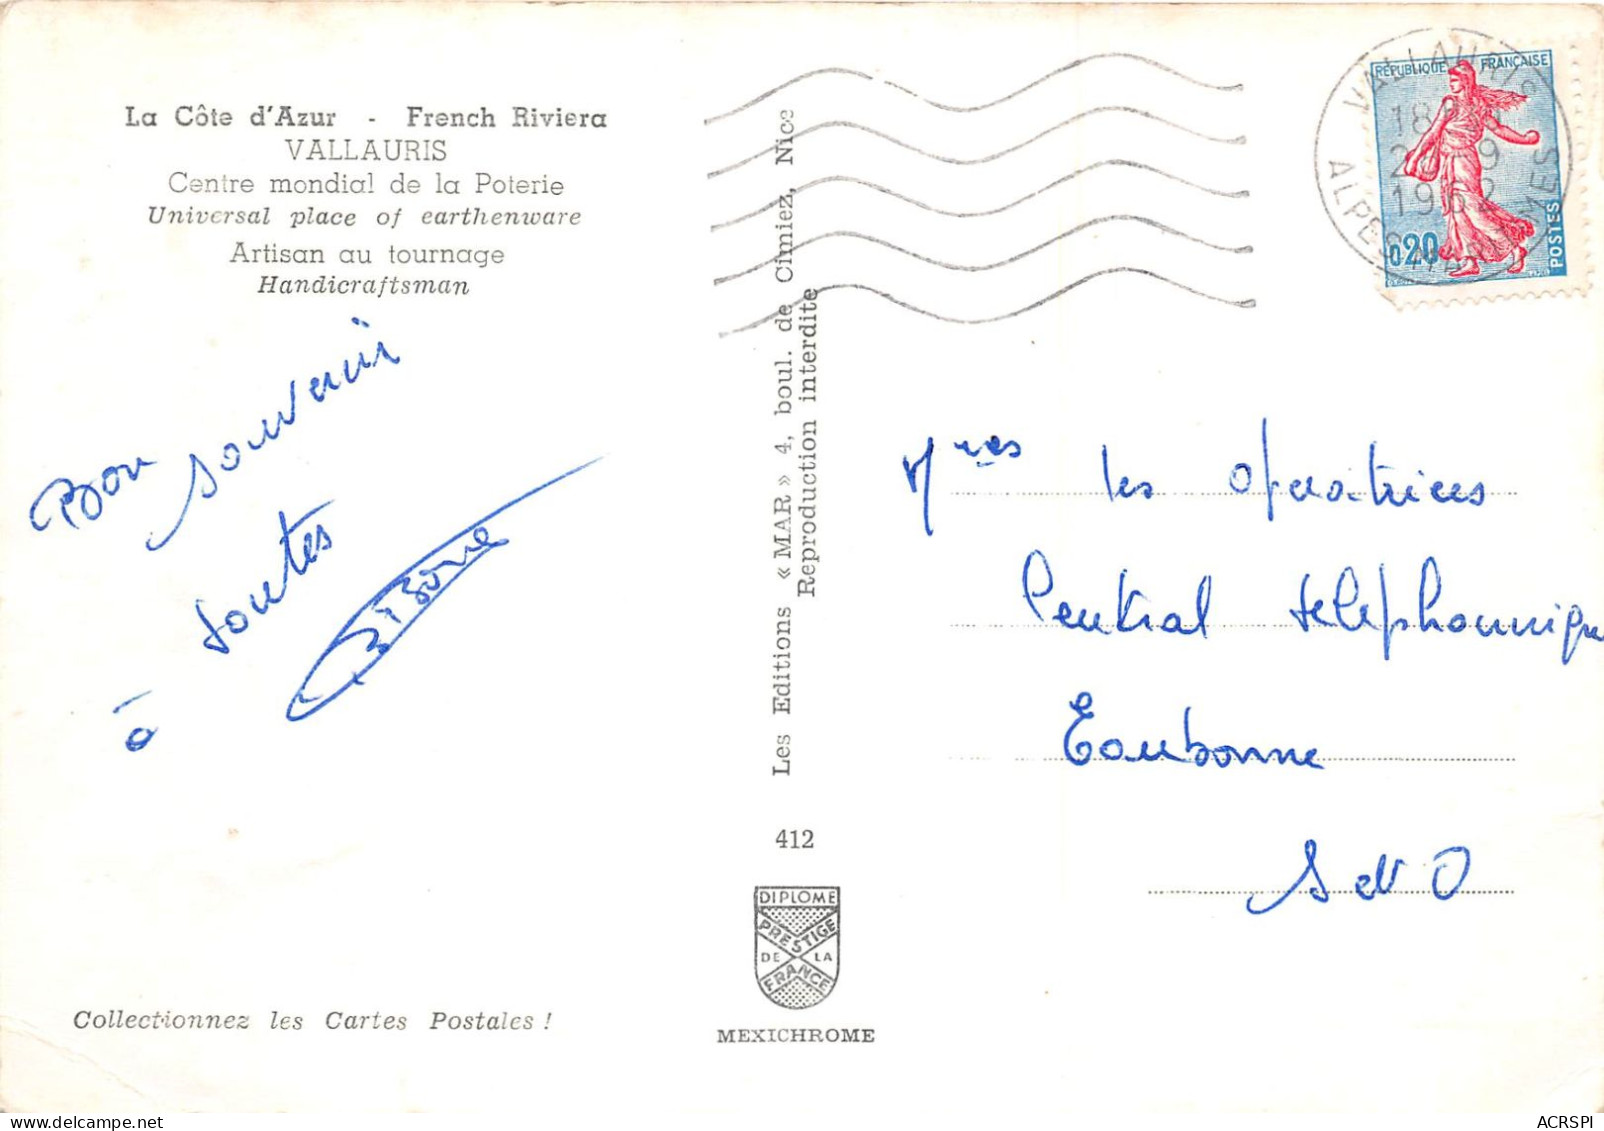 La Côte d'Azur - French Riviera
VALLAURIS
Centre mondial de la Poterie
Universal place of earthenware
Artisan au tournage
Handicraftsman
Bon souvenir
à toutes
Collectionnez les Cartes Postales !
Les Editions « MAR » 4, boul. de Cimiez, Nice
Reproduction interdite
412
DIPLOME
PRESTIGE
DE LA
FRANCE
MEXICHROME
RÉPUBLIQUE FRANÇAISE
0,20
POSTES
VALLAURIS
18
9
1962
ALPES MMES
Mmes les opératrices
Central téléphonique
Eaubonne
S et O
ACRSPI